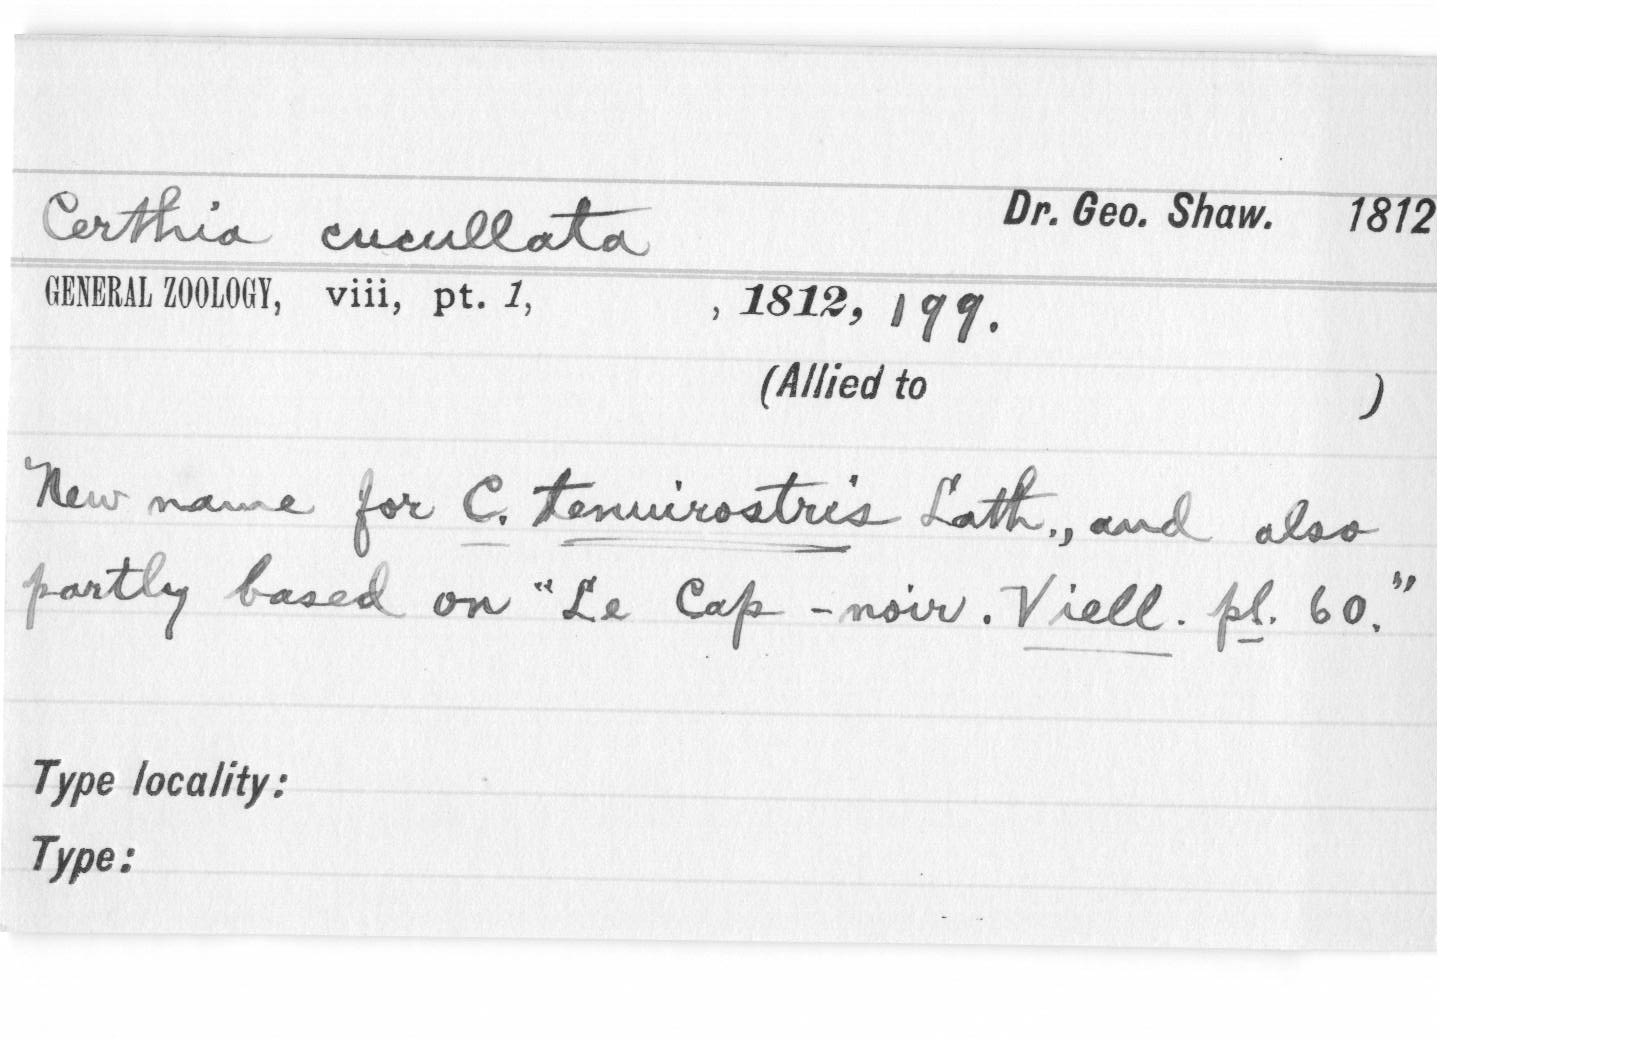 Certhia cucullata Dr. Geo. Shaw. 1812
GENERAL ZOOLOGY, viii, pt. 1, , 1812, 199.
(Allied to )
New name for C. tenuirostris Lath., and also
partly based on "Le Cap-noir. Viell. pl. 60."
Type locality:
Type: